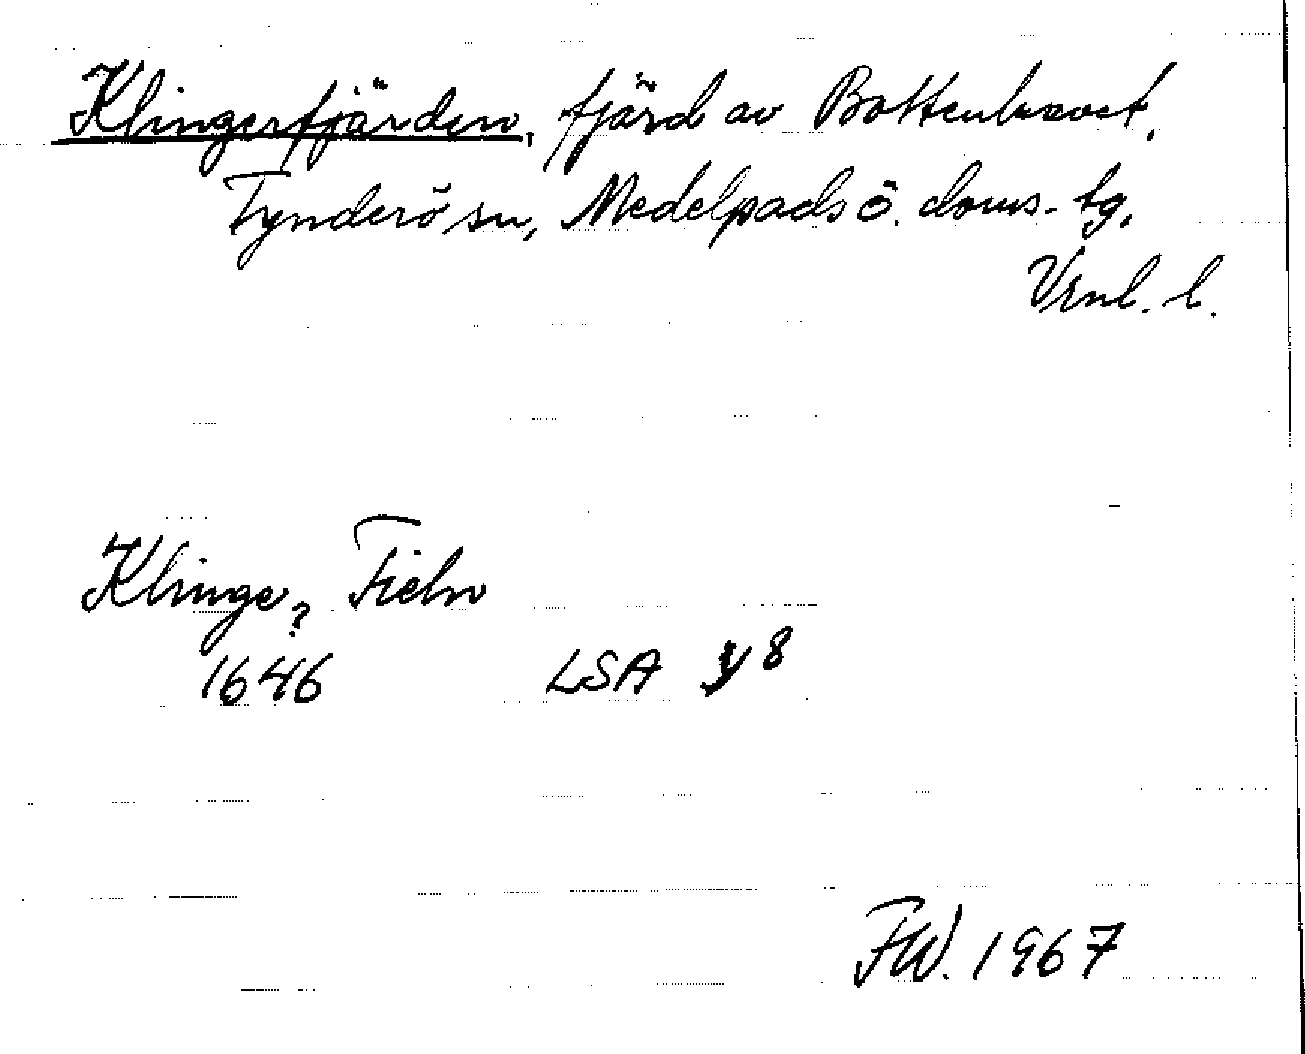 Klingerfjärden, fjärd av Bottenhavet,
Tynderö sn, Medelpads ö. doms. tg,
Vrnl. l.
Klinge? Fieln
1646 LSA Y 8
FW. 1967